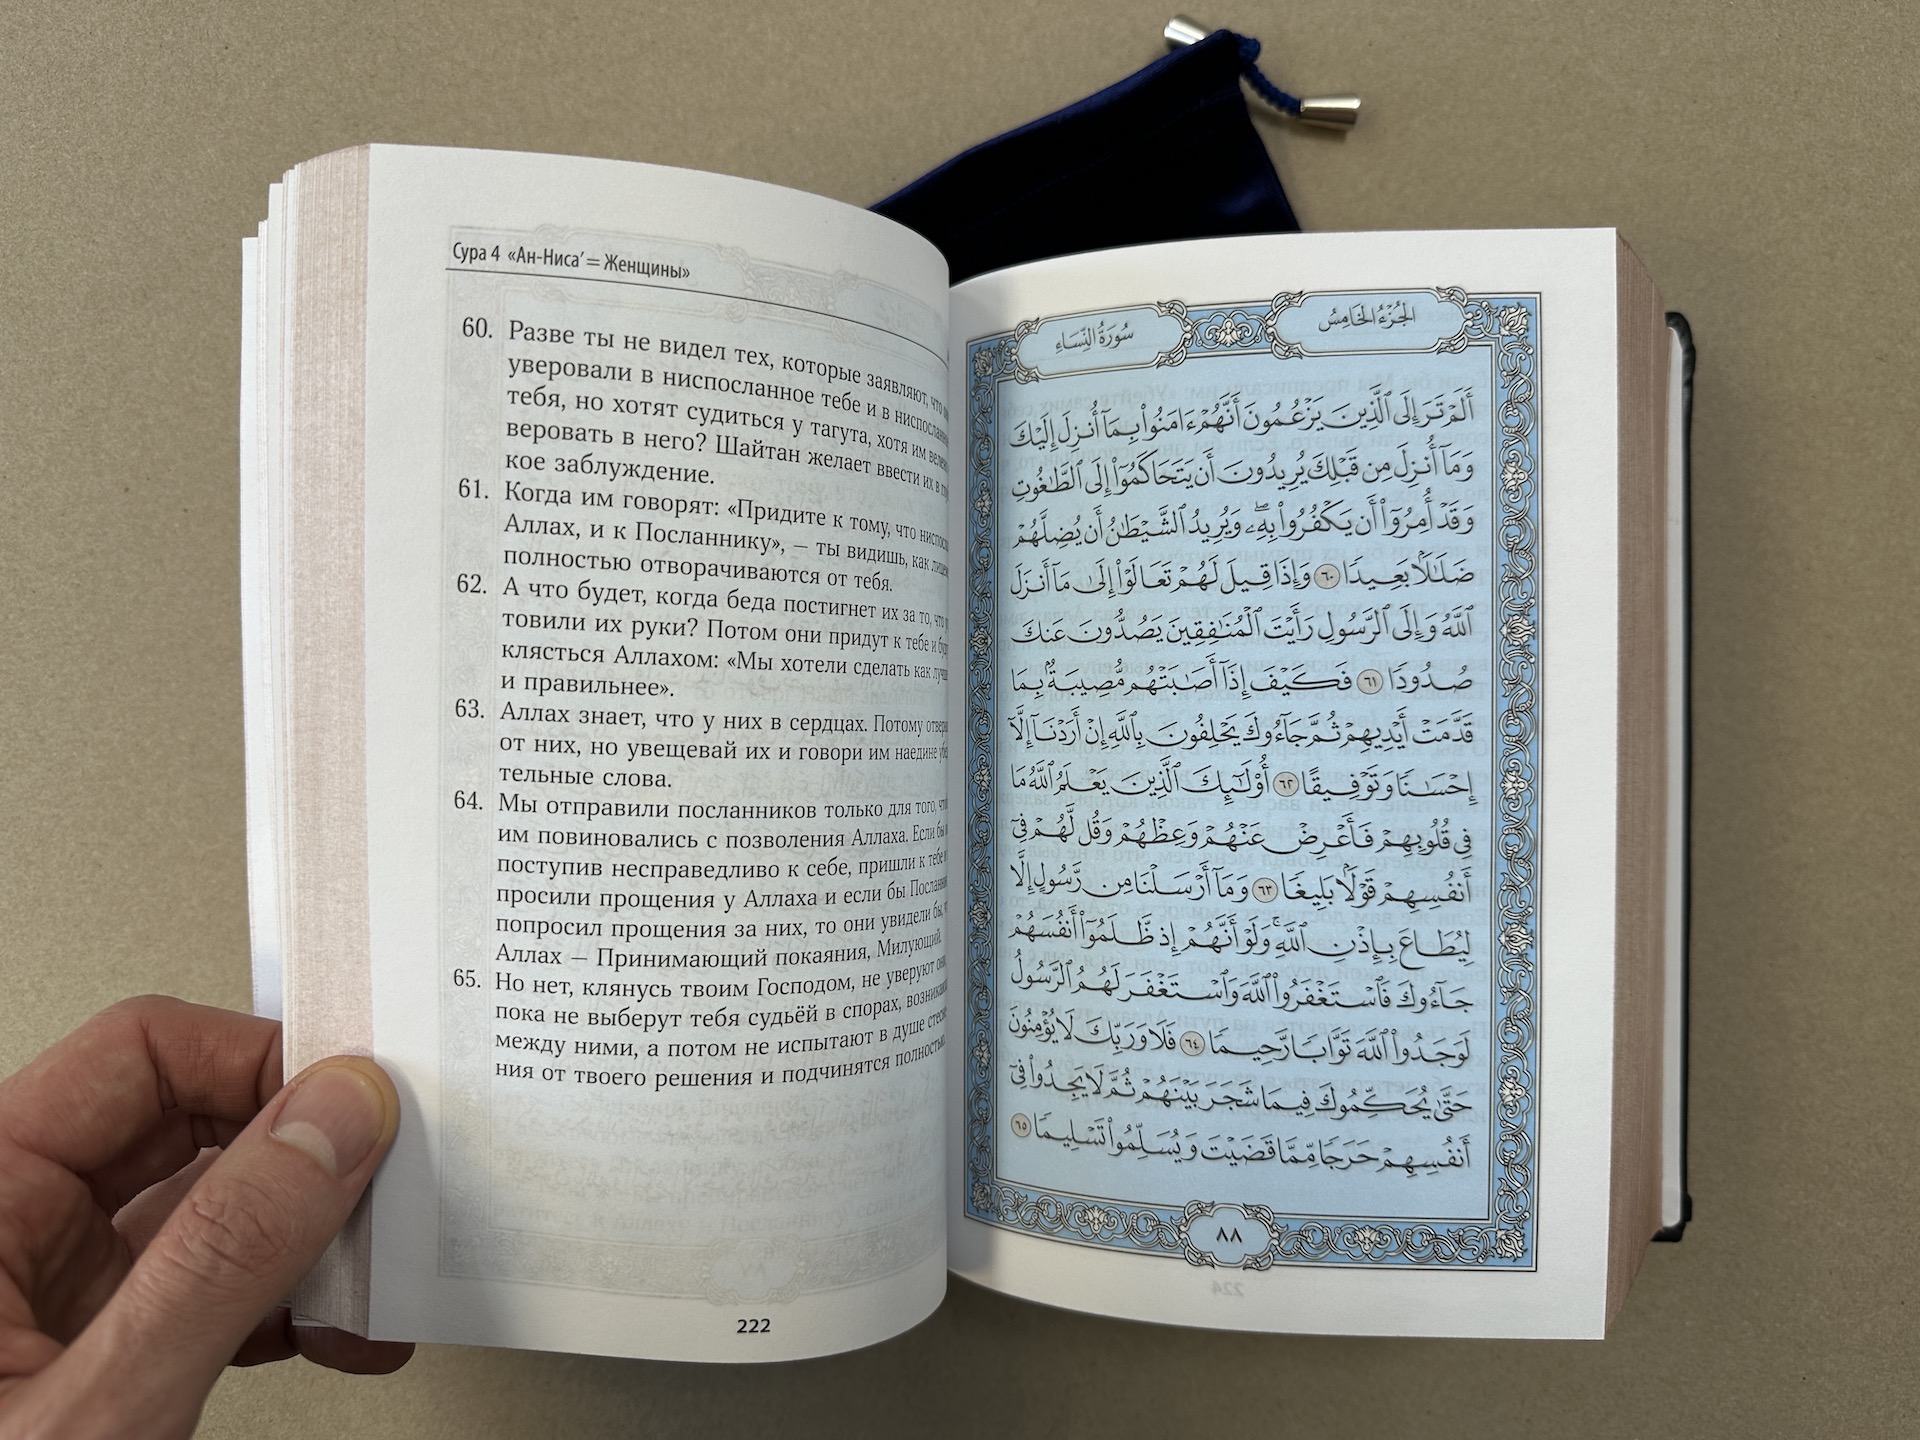 Сура 4 «Ан-Ниса’ = Женщины»
60. Разве ты не видел тех, которые заявляют, что
уверовали в ниспосланное тебе и в
тебя, но хотят судиться у тагута, хотя им
веровать в него? Шайтан желает ввести их в
кое заблуждение.
61. Когда им говорят: «Придите к тому, что
Аллах, и к Посланнику», — ты видишь, как
полностью отворачиваются от тебя.
62. А что будет, когда беда постигнет их за то, что
товили их руки? Потом они придут к тебе и
клясться Аллахом: «Мы хотели сделать как
и правильнее».
63. Аллах знает, что у них в сердцах. Потому
от них, но увещевай их и говори им наедине
тельные слова.
64. Мы отправили посланников только для того,
им повиновались с позволения Аллаха. Если бы
поступив несправедливо к себе, пришли к тебе
просили прощения у Аллаха и если бы
попросил прощения за них, то они увидели бы,
Аллах — Принимающий покаяния, Милующий.
65. Но нет, клянусь твоим Господом, не уверуют
пока не выберут тебя судьёй в спорах,
между ними, а потом не испытают в душе
ния от твоего решения и подчинятся полностью.
222
الجُزْءُ الخَامِسُ
سُورَةُ النِّسَاءِ
أَلَمْ تَرَ إِلَى ٱلَّذِينَ يَزْعُمُونَ أَنَّهُمْ ءَامَنُوا۟ بِمَآ أُنزِلَ إِلَيْكَ
وَمَآ أُنزِلَ مِن قَبْلِكَ يُرِيدُونَ أَن يَتَحَاكَمُوٓا۟ إِلَى ٱلطَّٰغُوتِ
وَقَدْ أُمِرُوٓا۟ أَن يَكْفُرُوا۟ بِهِۦۖ وَيُرِيدُ ٱلشَّيْطَٰنُ أَن يُضِلَّهُمْ
ضَلَٰلًۢا بَعِيدًا ٦٠ وَإِذَا قِيلَ لَهُمْ تَعَالَوْا۟ إِلَىٰ مَآ أَنزَلَ
ٱللَّهُ وَإِلَى ٱلرَّسُولِ رَأَيْتَ ٱلْمُنَٰفِقِينَ يَصُدُّونَ عَنكَ
صُدُودًا ٦١ فَكَيْفَ إِذَآ أَصَٰبَتْهُم مُّصِيبَةٌۢ بِمَا
قَدَّمَتْ أَيْدِيهِمْ ثُمَّ جَآءُوكَ يَحْلِفُونَ بِٱللَّهِ إِنْ أَرَدْنَآ إِلَّآ
إِحْسَٰنًا وَتَوْفِيقًا ٦٢ أُو۟لَٰٓئِكَ ٱلَّذِينَ يَعْلَمُ ٱللَّهُ مَا
فِى قُلُوبِهِمْ فَأَعْرِضْ عَنْهُمْ وَعِظْهُمْ وَقُل لَّهُمْ فِىٓ
أَنفُسِهِمْ قَوْلًۢا بَلِيغًا ٦٣ وَمَآ أَرْسَلْنَا مِن رَّسُولٍ إِلَّا
لِيُطَاعَ بِإِذْنِ ٱللَّهِۚ وَلَوْ أَنَّهُمْ إِذ ظَّلَمُوٓا۟ أَنفُسَهُمْ
جَآءُوكَ فَٱسْتَغْفَرُوا۟ ٱللَّهَ وَٱسْتَغْفَرَ لَهُمُ ٱلرَّسُولُ
لَوَجَدُوا۟ ٱللَّهَ تَوَّابًا رَّحِيمًا ٦٤ فَلَا وَرَبِّكَ لَا يُؤْمِنُونَ
حَتَّىٰ يُحَكِّمُوكَ فِيمَا شَجَرَ بَيْنَهُمْ ثُمَّ لَا يَجِدُوا۟ فِىٓ
أَنفُسِهِمْ حَرَجًا مِّمَّا قَضَيْتَ وَيُسَلِّمُوا۟ تَسْلِيمًا ٦٥
٨٨